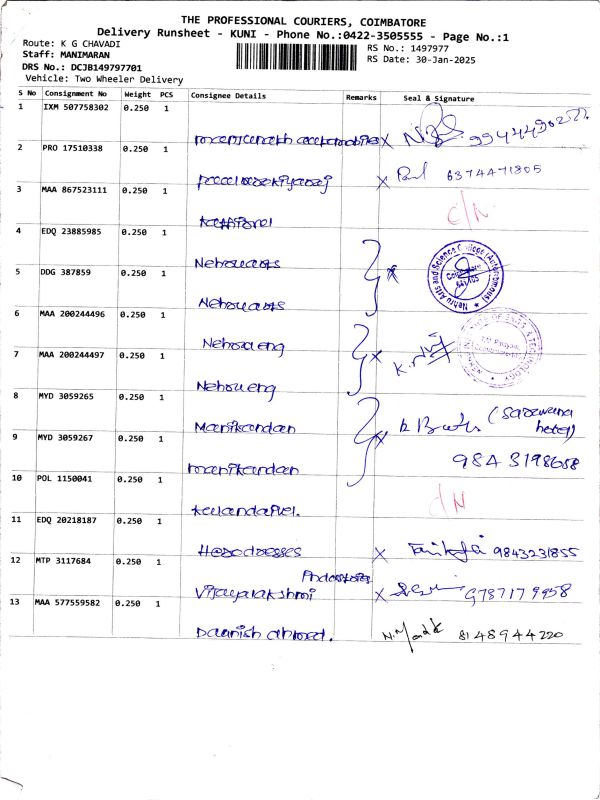 THE PROFESSIONAL COURIERS, COIMBATORE
Delivery Runsheet - KUNI - Phone No.:0422-3505555 - Page No.:1
Route: K G CHAVADI
RS No.: 1497977
Staff: MANIMARAN
RS Date: 30-Jan-2025
DRS No.: DCJB149797701
Vehicle: Two Wheeler Delivery
S No Consignment No Weight PCS Consignee Details Remarks Seal & Signature
1 IXM 507758302 0.250 1
2 PRO 17510338 0.250 1 6374471805
3 MAA 867523111 0.250 1 C/N
4 EDQ 23885985 0.250 1 Nehru arts
5 DDG 387859 0.250 1 Nehru arts
Nehru Arts and Science College (Autonomous)
6 MAA 200244496 0.250 1 Nehru eng
7 MAA 200244497 0.250 1 Nehru eng
8 MYD 3059265 0.250 1 Manikandan (Saravana hotel)
9 MYD 3059267 0.250 1 manikandan 9843198658
10 POL 1150041 0.250 1 C/N
11 EDQ 20218187 0.250 1 Herodresses 9843231855
12 MTP 3117684 0.250 1 Vijayalakshmi 9787179958
13 MAA 577559582 0.250 1 Daanish ahmed. 8148944220